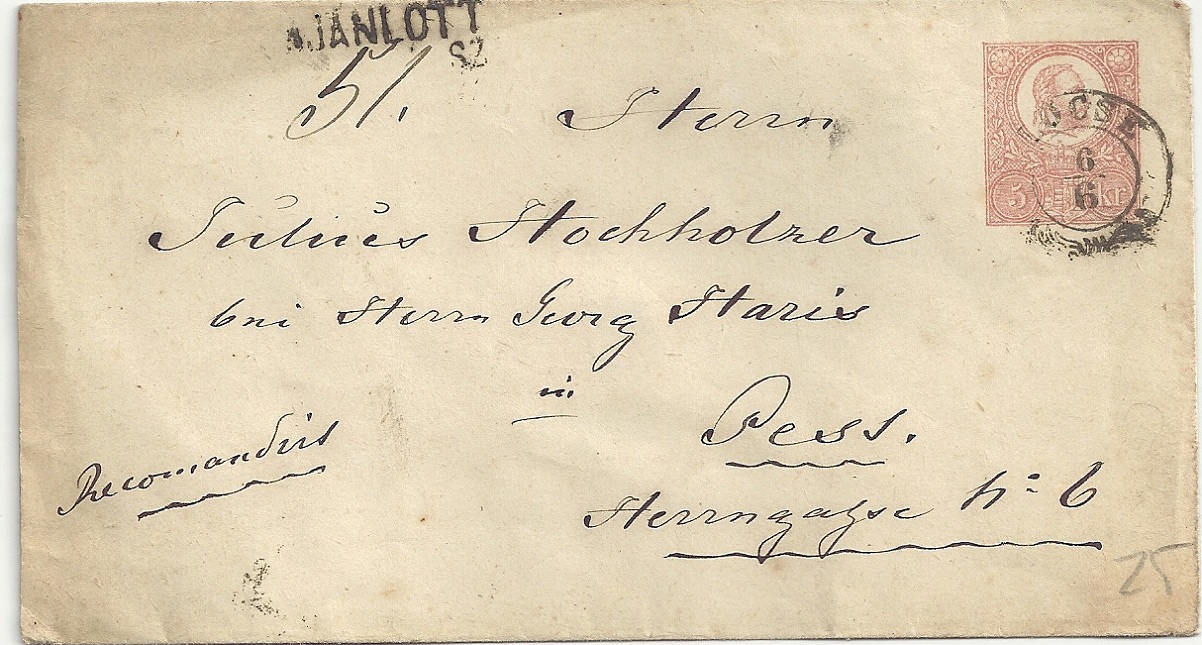 AJÁNLOTT
SZ
51.
Herrn
Julius Hochholzer
bei Herrn Georg Haris
in
Pest.
Herrngasse No 6
Recomandirt
ÓCSA
6
6
5 kr
25